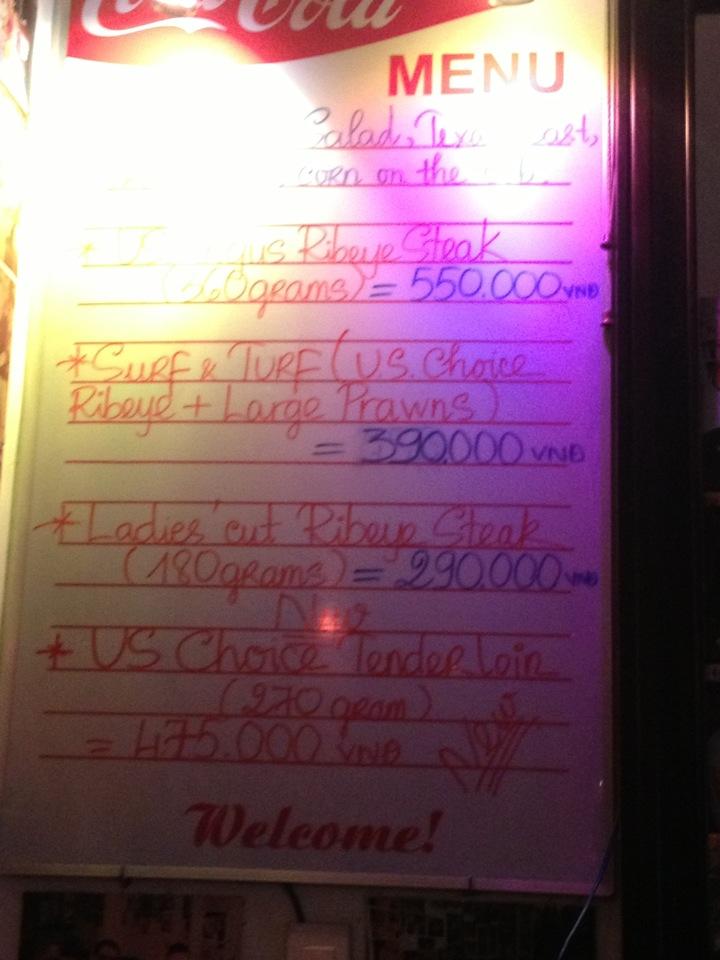 Coca-Cola
MENU
Salad,
corn on the
* US Angus Ribeye Steak
(360grams) = 550.000 VNĐ
* SURF & TURF (US. Choice
Ribeye + Large Prawns)
= 390.000 VNĐ
* Ladies' cut Ribeye Steak
(180grams) = 290.000 VNĐ
* US Choice Tender Loin
(270 gram)
= 475.000 VNĐ
Welcome!